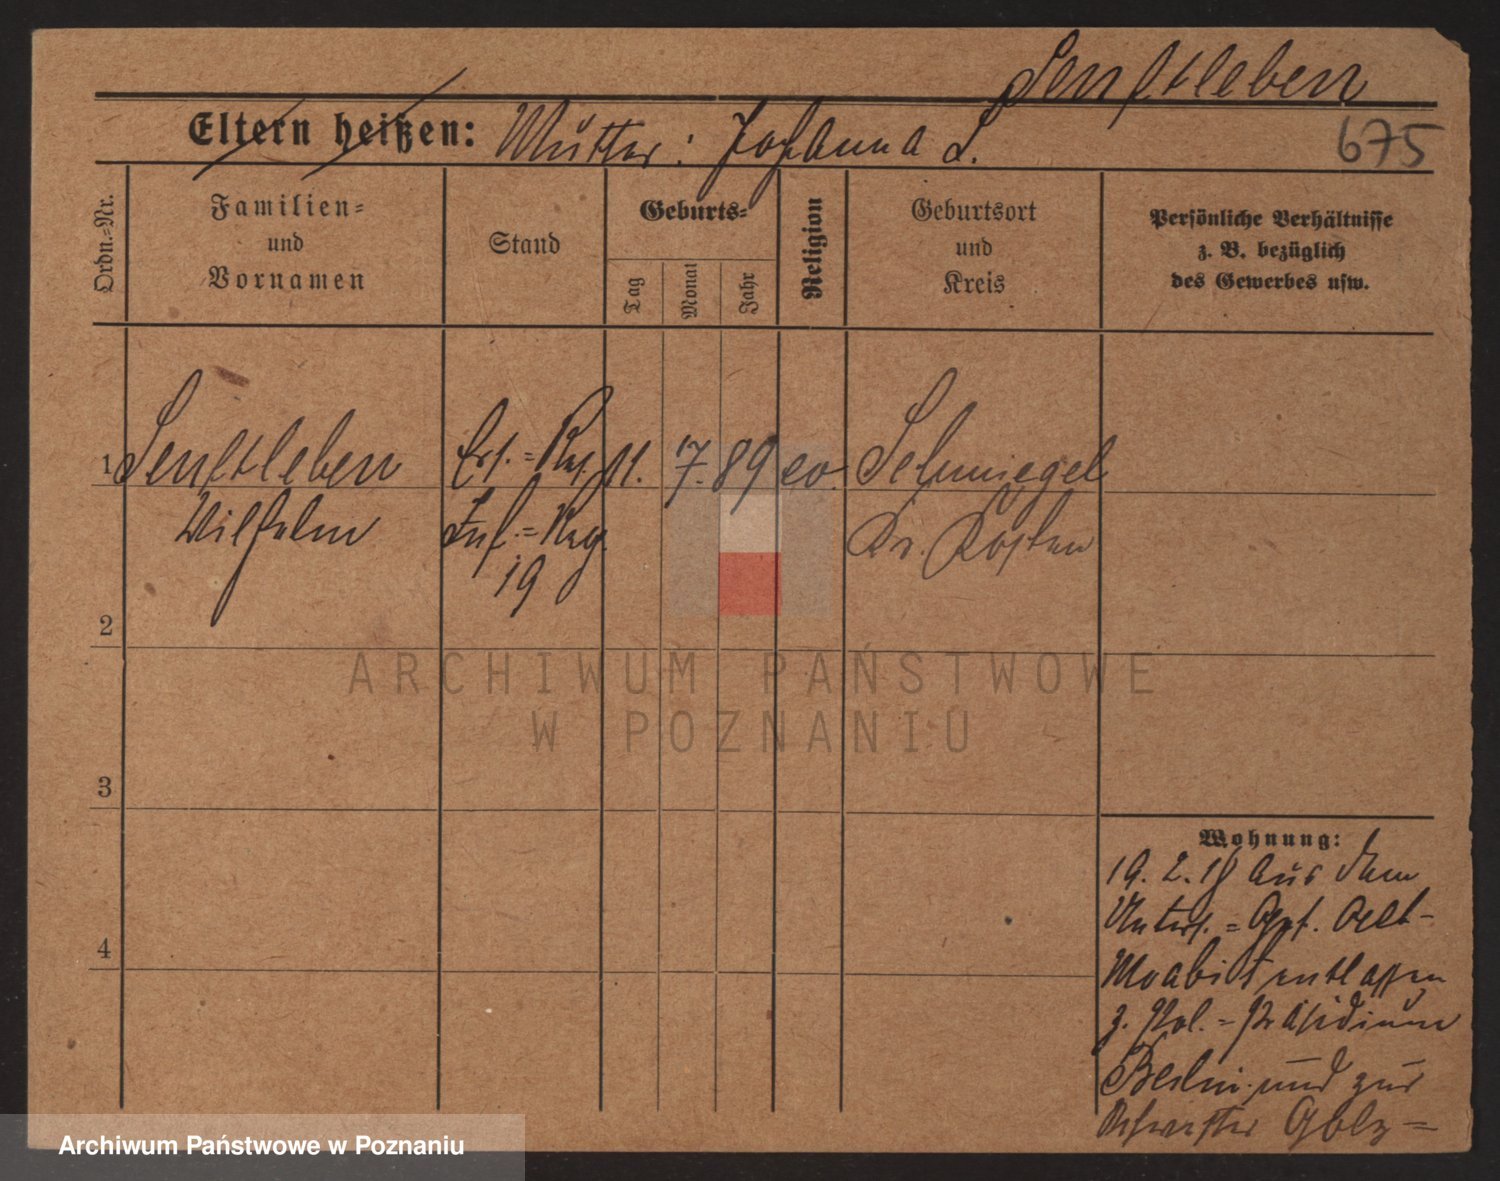 Senftleben
Eltern heißen: Mutter: Johanna S.
675
Ordn.=Nr.
Familien=
und
Vornamen
Stand
Geburts=
Tag
Monat
Jahr
Religion
Geburtsort
und
Kreis
Persönliche Verhältnisse
z. B. bezüglich
des Gewerbes usw.
1 Senftleben Ers.= Res. 11. 7. 89 ev. Schmiegel
Wilhelm Inf.= Reg. Kr. Kosten
19
2
3
4
Wohnung:
19. 2. 18 aus dem
Unters.= Alt-
Moabit entlassen
z. Pol.= Präsidium
Berlin und zur
ARCHIWUM PAŃSTWOWE
W POZNANIU
Archiwum Państwowe w Poznaniu